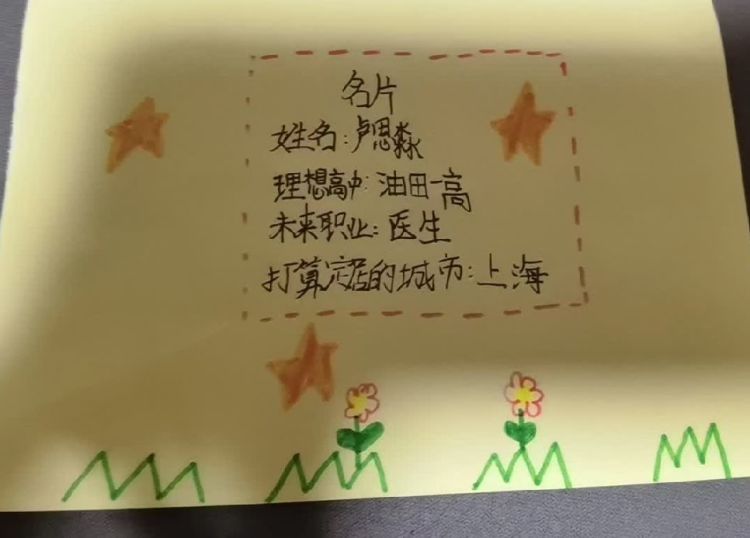 名片
姓名:卢思淼
理想高中:油田一高
未来职业:医生
打算定居的城市:上海